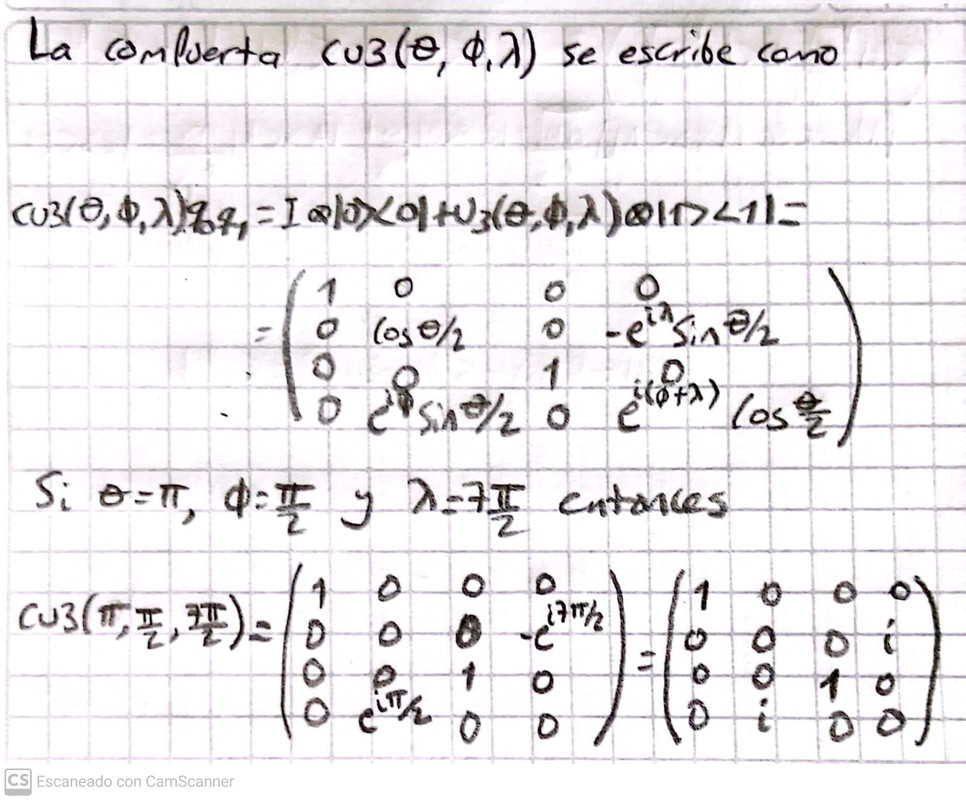 La compuerta CU3(θ, ϕ, λ) se escribe como
CU3(θ, ϕ, λ)q₀q₁ = I ⊗ |0><0| + U₃(θ, ϕ, λ) ⊗ |1><1| =
= ( 1 0 0 0
0 Cos θ/2 0 -e^{iλ} Sin θ/2
0 0 1 0
0 e^{iϕ} Sin θ/2 0 e^{i(ϕ+λ)} Cos θ/2 )
Si θ=π, ϕ=π/2 y λ=7π/2 entonces
CU3(π, π/2, 7π/2) = ( 1 0 0 0 ; 0 0 0 -e^{i7π/2} ; 0 0 1 0 ; 0 e^{iπ/2} 0 0 ) = ( 1 0 0 0 ; 0 0 0 i ; 0 0 1 0 ; 0 i 0 0 )
CS Escaneado con CamScanner